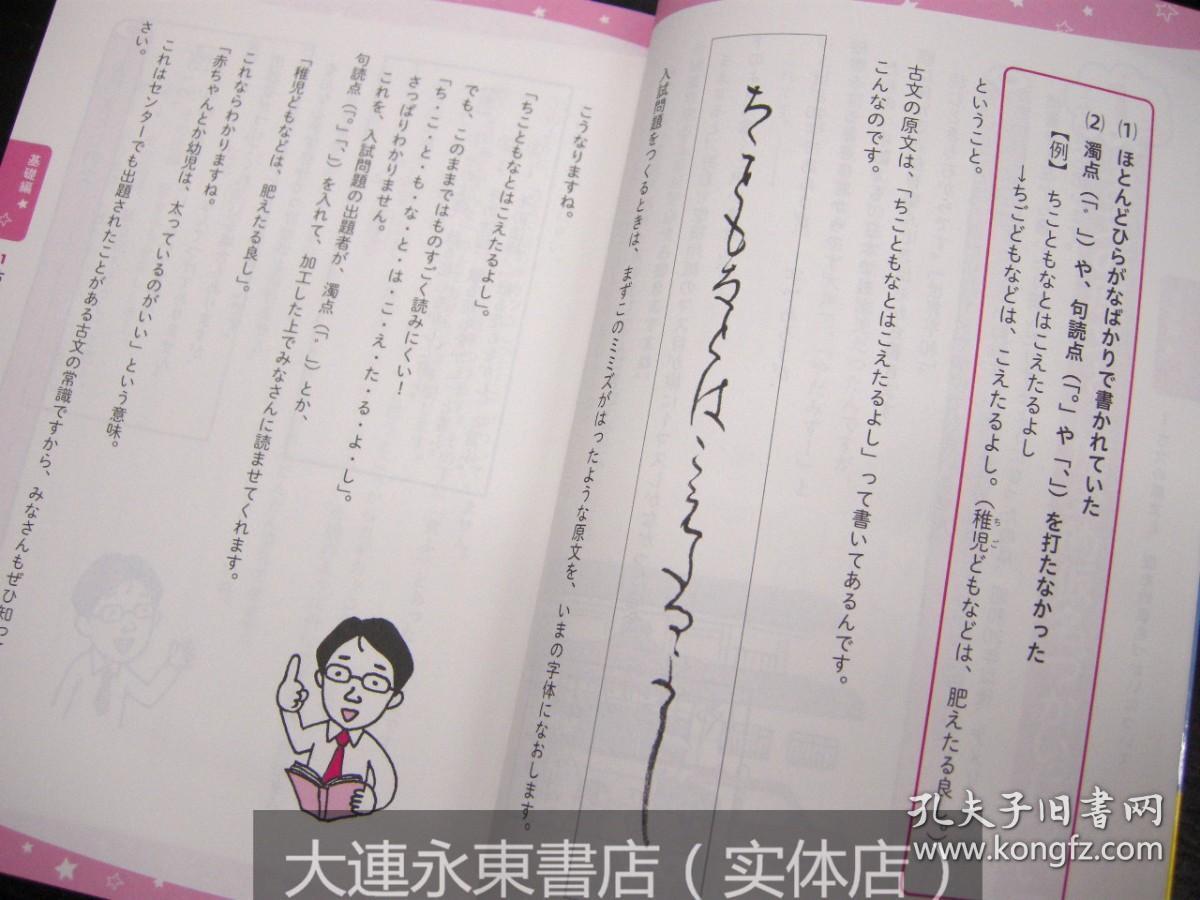 (1) ほとんどひらがなばかりで書かれていた
(2) 濁点(「゛」)や、句読点(「。」や「、」)を打たなかった
【例】 ちこともなとはこえたるよし
→ちごどもなどは、こえたるよし。(稚児どもなどは、肥えたる良し。)
ちご
ということ。
古文の原文は、「ちこともなとはこえたるよし」って書いてあるんです。
こんなのです。
ちこともなとはこえたるよし
入試問題をつくるときは、まずこのミミズがはったような原文を、いまの字体になおします。
こうなりますね。
「ちこともなとはこえたるよし」。
でも、このままではものすごく読みにくい!
「ち・こ・と・も・な・と・は・こ・え・た・る・よ・し」。
さっぱりわかりません。
これを、入試問題の出題者が、濁点(「゛」)とか、
句読点(「。」「、」)を入れて、加工した上でみなさんに読ませてくれます。
「稚児どもなどは、肥えたる良し」。
これならわかりますね。
「赤ちゃんとか幼児は、太っているのがいい」という意味。
これはセンターでも出題されたことがある古文の常識ですから、みなさんもぜひ知って
さい。
基礎編
1
孔夫子旧书网
www.kongfz.com
大連永東書店(实体店)